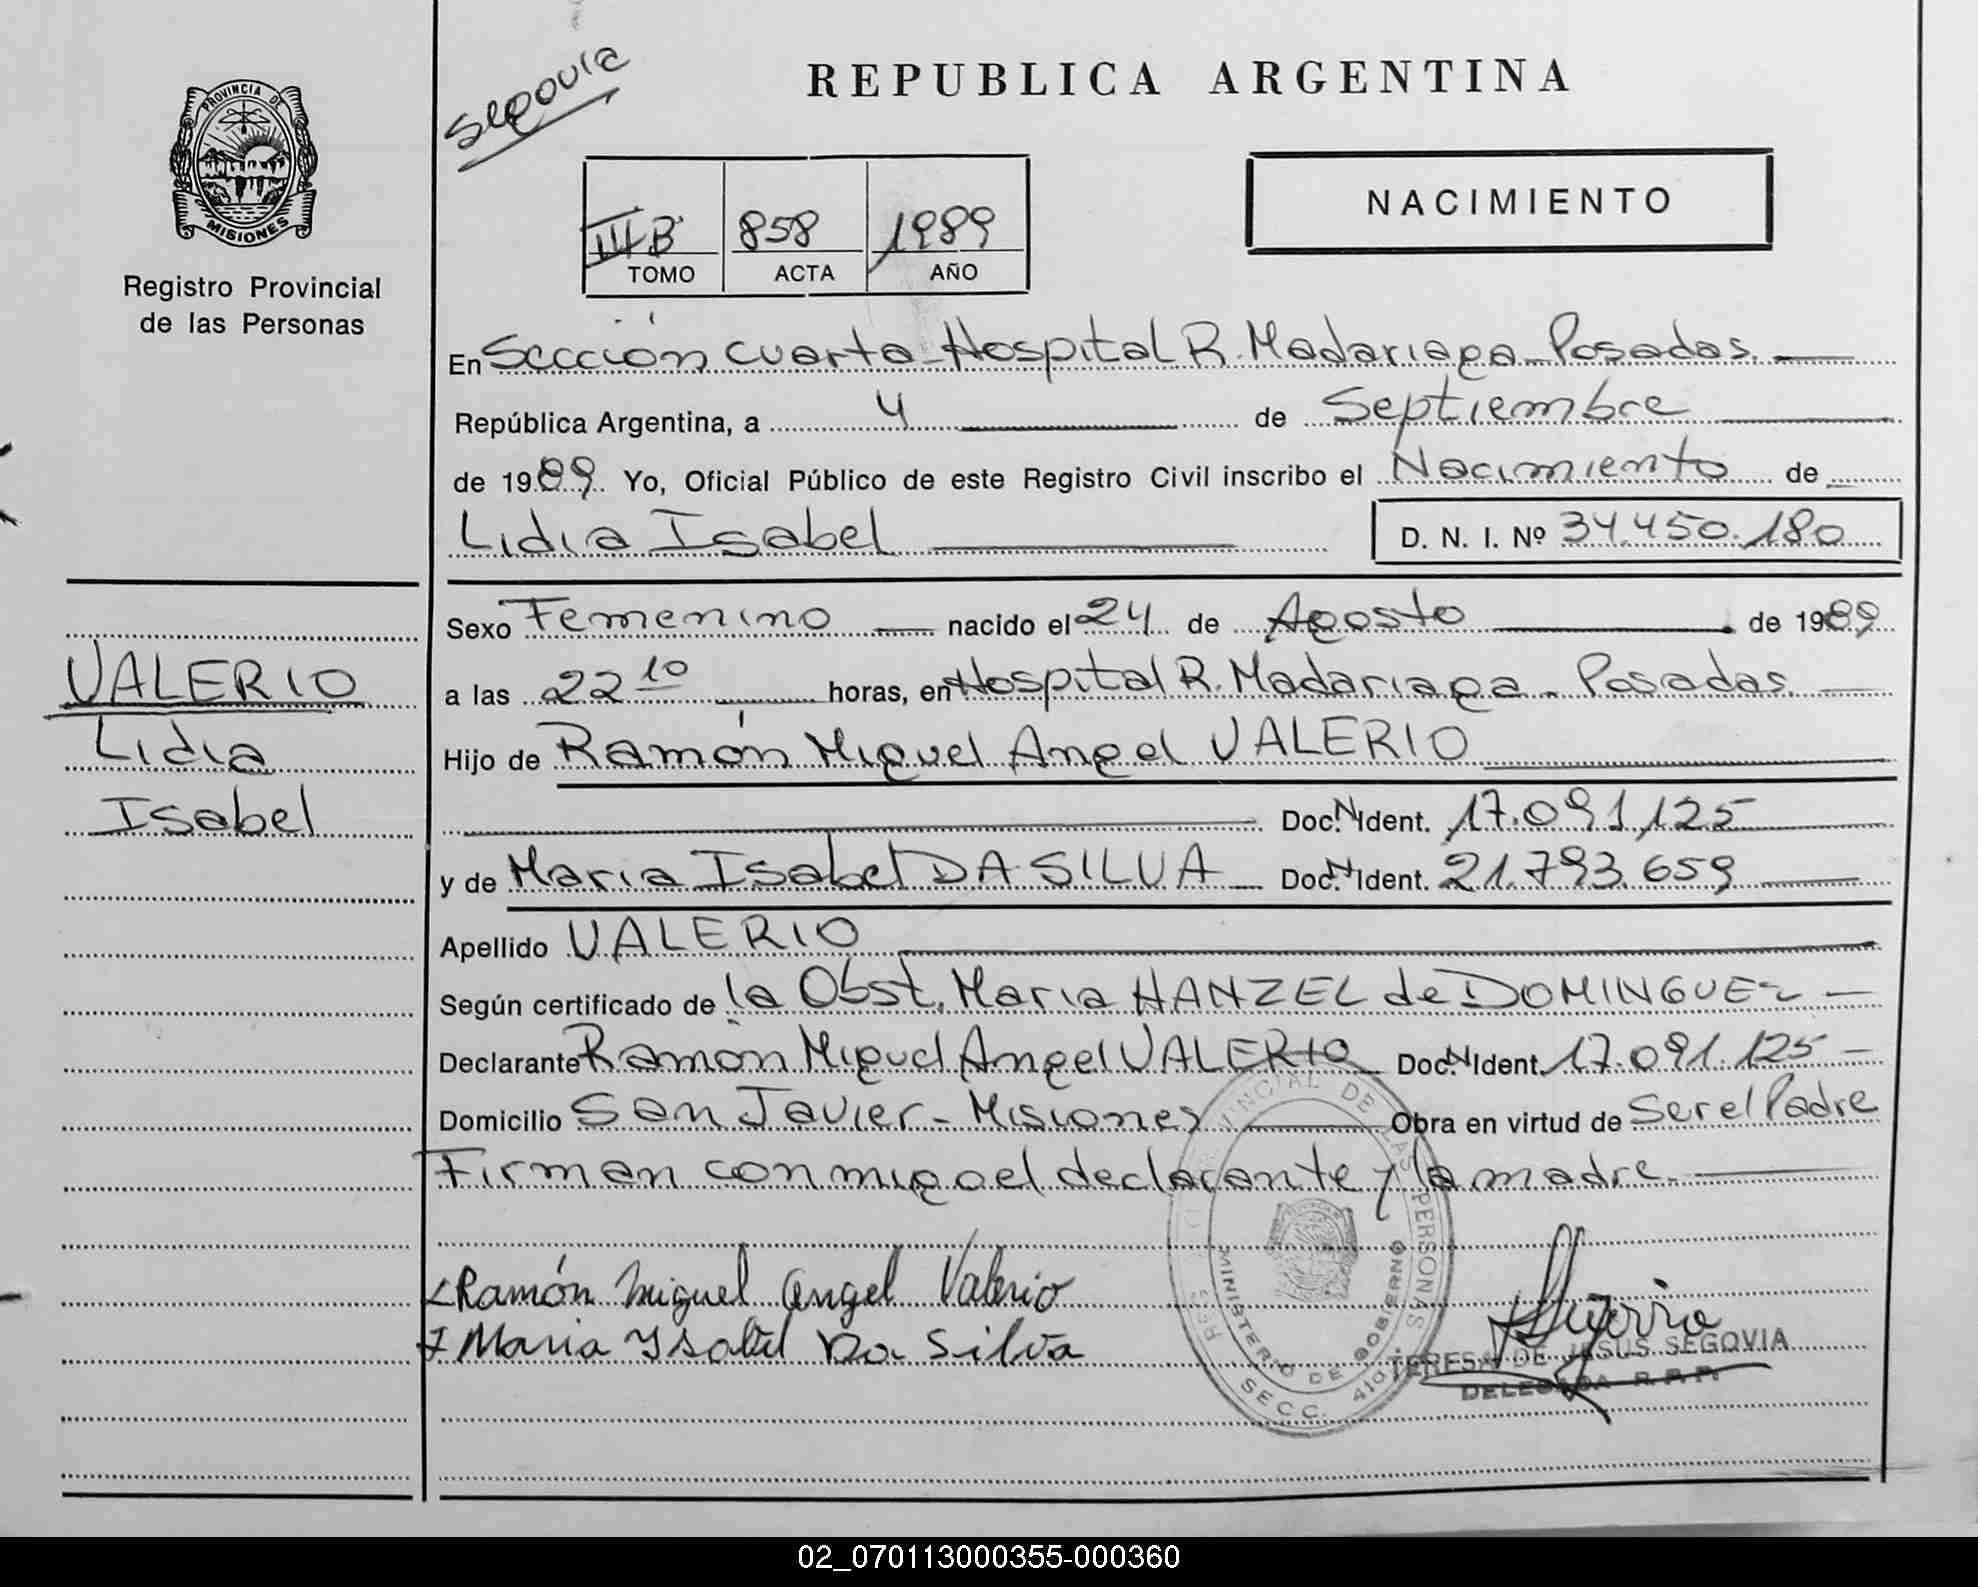 PROVINCIA DE
MISIONES
Registro Provincial
de las Personas
Segovia
REPUBLICA ARGENTINA
NACIMIENTO
III B 858 1989
TOMO ACTA AÑO
En Sección cuarta - Hospital R. Madariaga - Posadas.
República Argentina, a 4 de Septiembre
de 1989. Yo, Oficial Público de este Registro Civil inscribo el Nacimiento de
Lidia Isabel D. N. I. Nº 34.450.180
VALERIO
Lidia
Isabel
Sexo Femenino nacido el 24 de Agosto de 1989
a las 22 10 horas, en Hospital R. Madariaga - Posadas.
Hijo de Ramón Miguel Angel VALERIO
Doc. N. Ident. 17.091.125
y de Maria Isabel DA SILVA Doc. N. Ident. 21.793.659
Apellido VALERIO
Según certificado de la Obst. Maria HANZEL de DOMINGUEZ
Declarante Ramón Miguel Angel VALERIO Doc. N. Ident. 17.091.125
Domicilio San Javier - Misiones Obra en virtud de Ser el Padre
Firman conmigo el declarante y la madre.
Ramón Miguel Angel Valerio
Maria Isabel Da Silva
PROVINCIAL DE LAS PERSONAS
MINISTERIO DE GOBIERNO
SECC. 410
TERESA DE JESUS SEGOVIA
DELEGADA R. P. P.
02_070113000355-000360